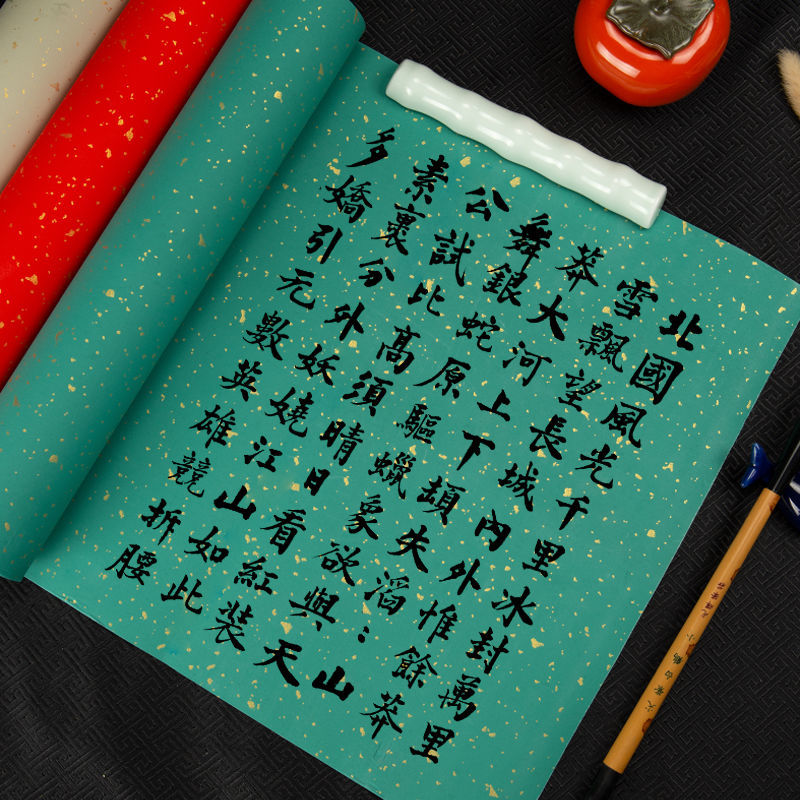 北國風光千里冰封萬里
雪飄望長城內外惟餘莽
莽大河上下頓失滔:山
舞銀蛇原驅蠟象欲與天
公試比高須晴日看紅裝
素裹分外妖嬈江山如此
多嬌引元數英雄競折腰